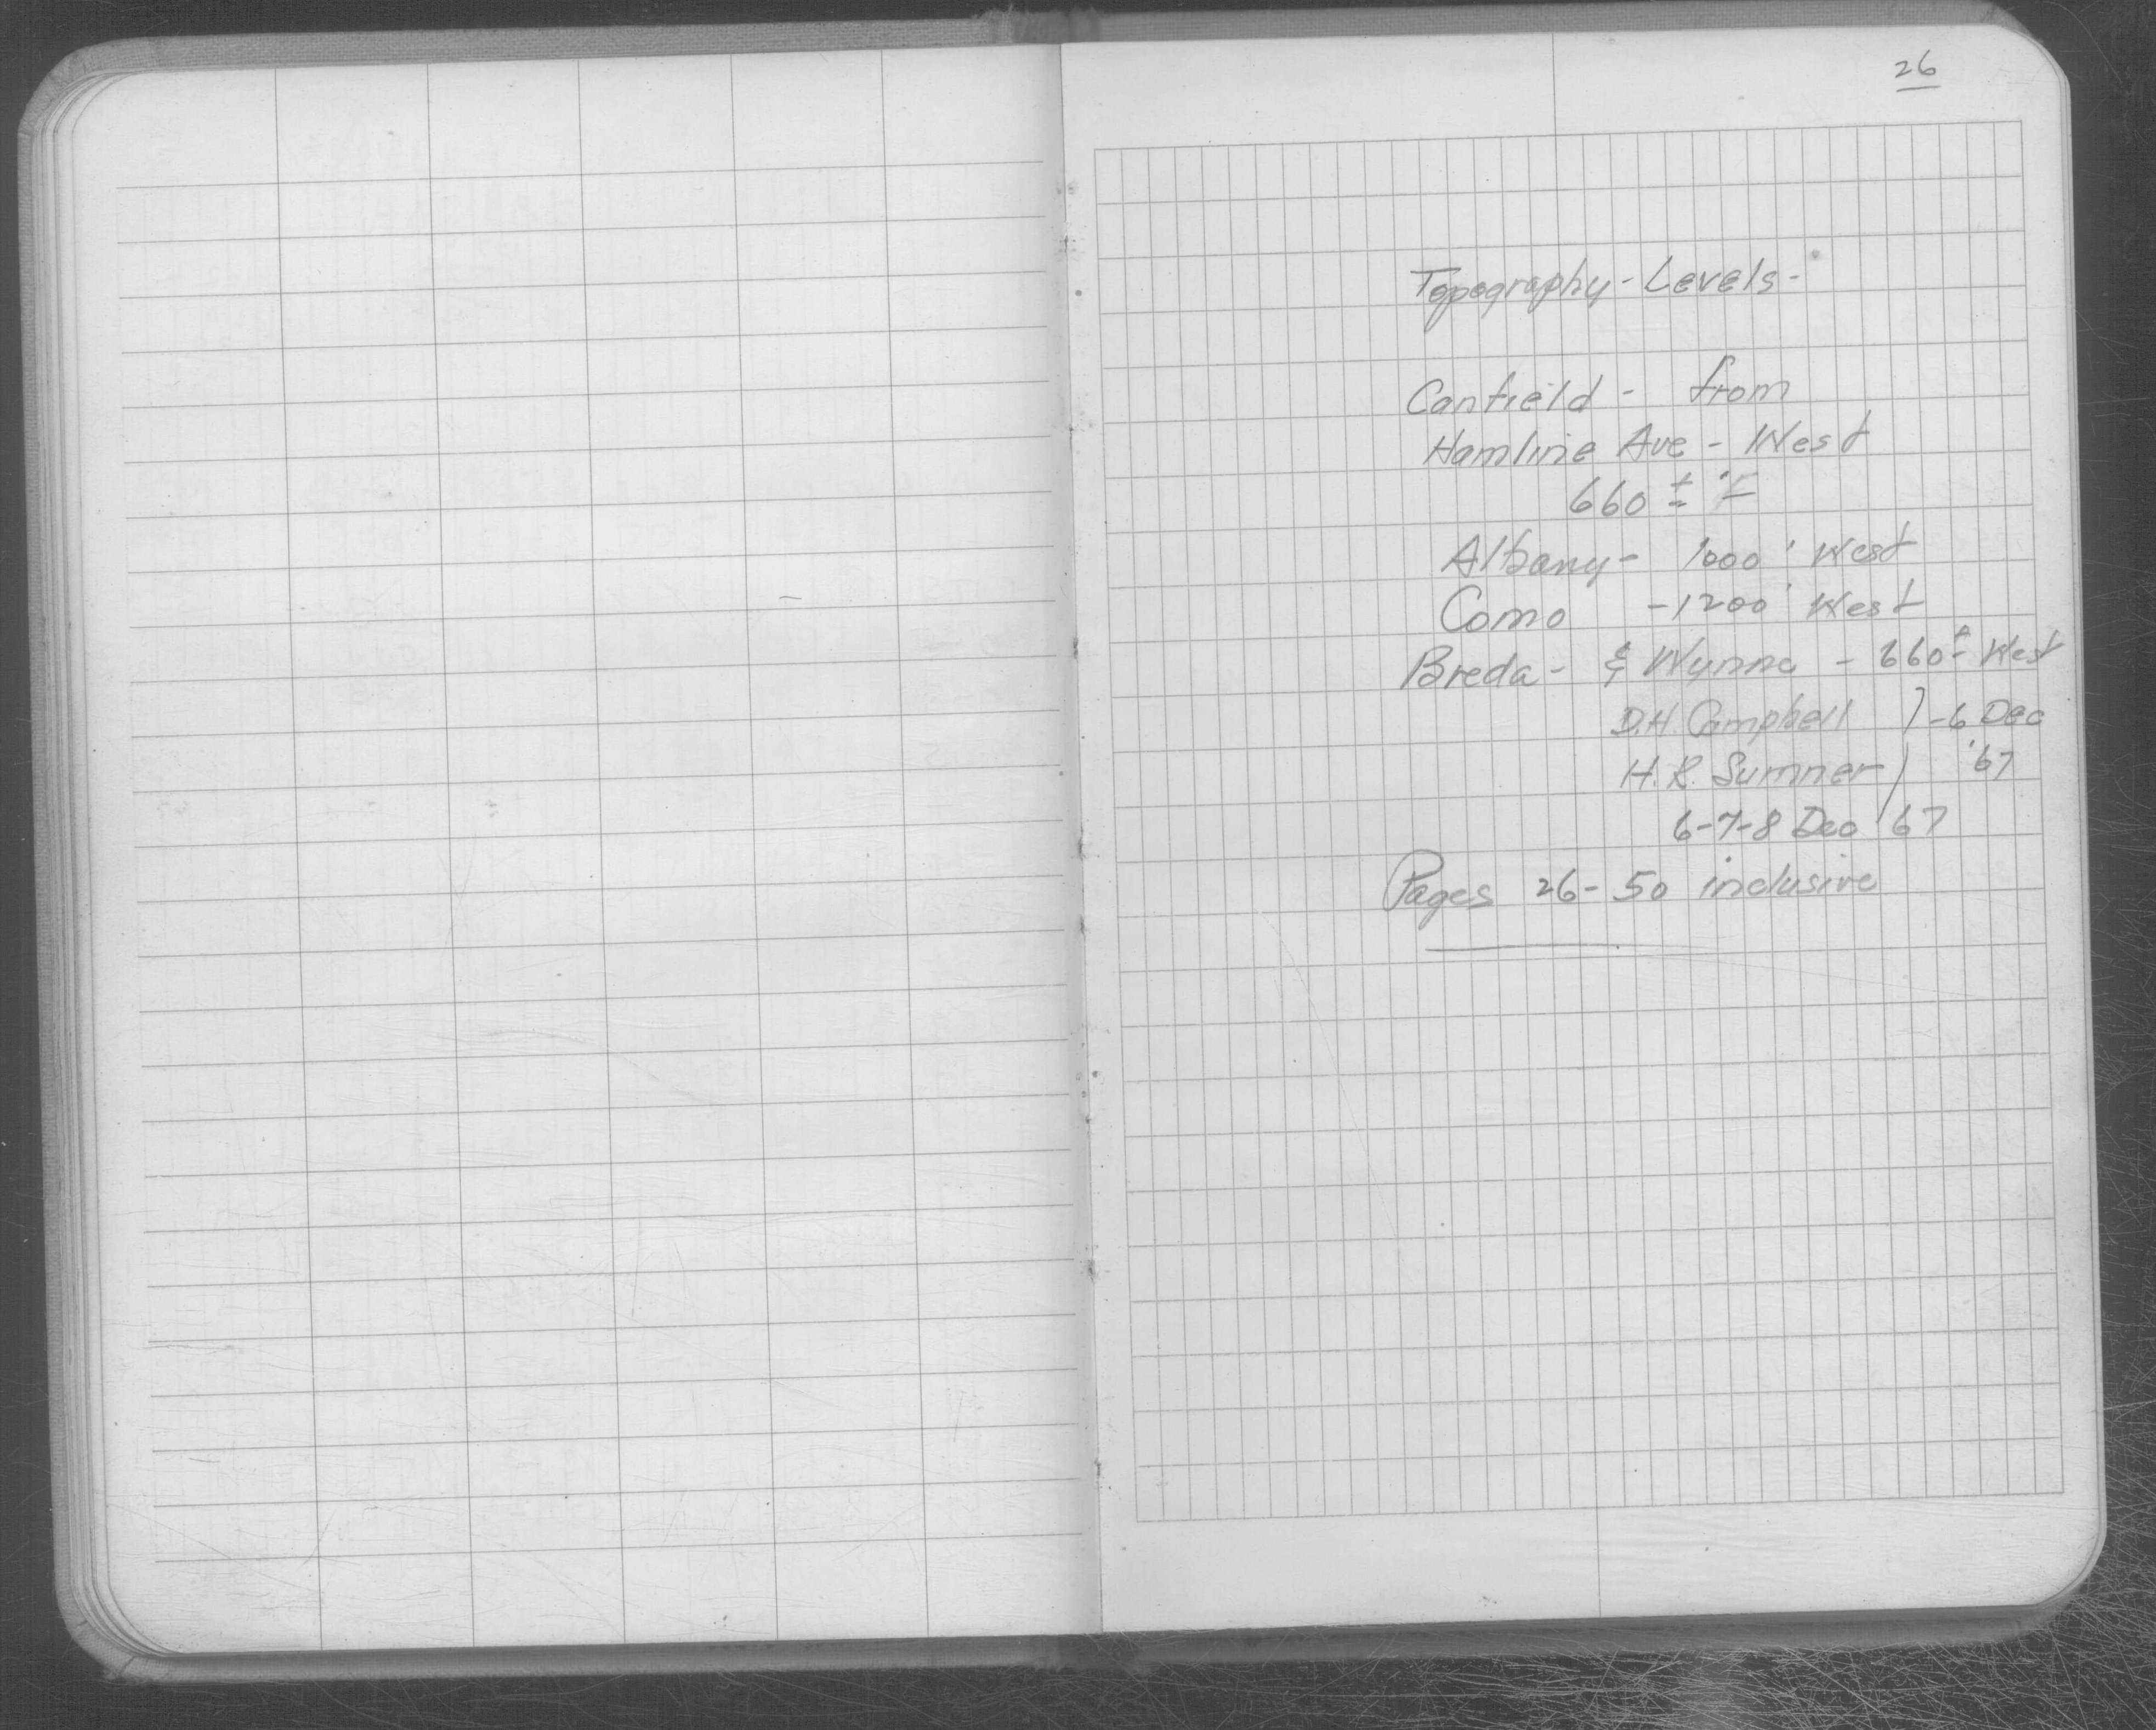 26
Topography - Levels -
Canfield - from
Hamline Ave - West
660 ±
Albany - 1000' West
Como - 1200' West
Breda - & Wynne - 660± West
D.H. Campbell ) - 6 Dec
H. R. Sumner ) '67
6-7-8 Dec '67
Pages 26-50 inclusive